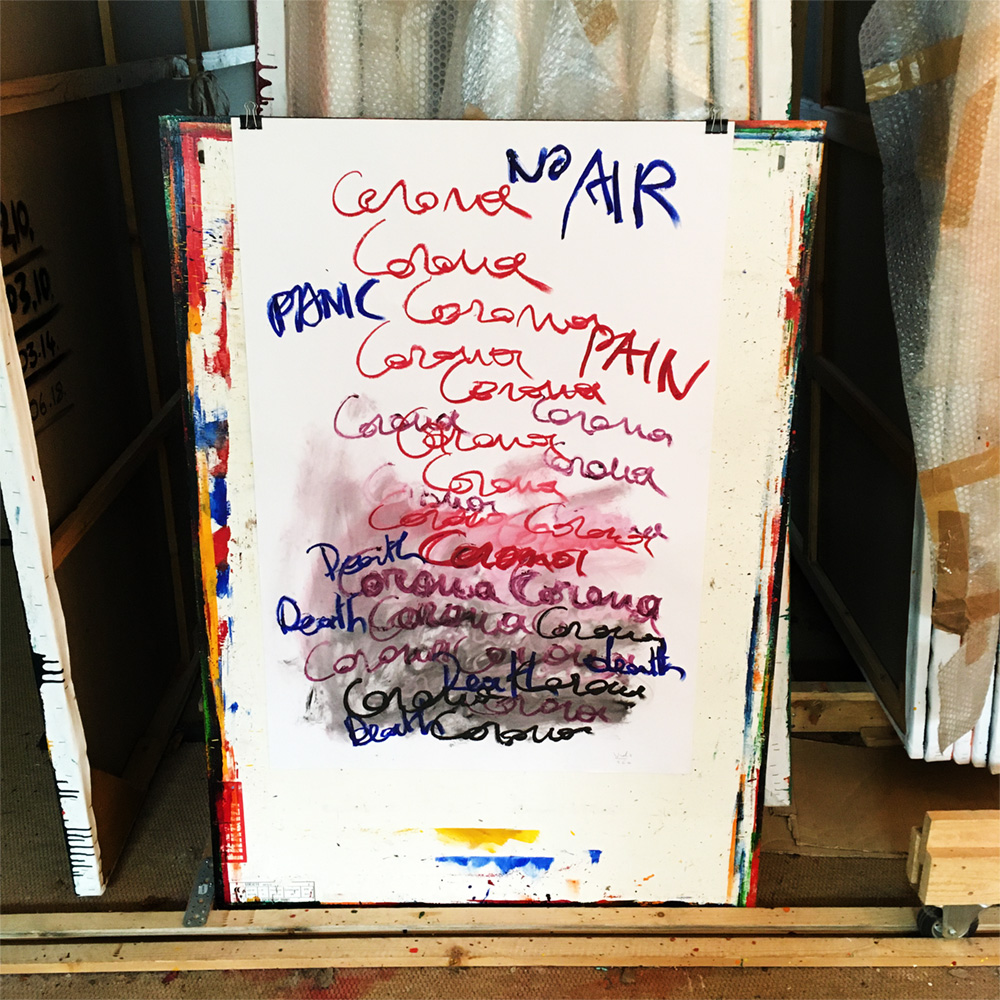 Corona NO AIR
Corona
PANIC Corona
Corona PAIN
Corona
Corona Corona
Corona
Corona
Corona
Corona Corona
Death Corona
Corona Corona
Death Corona Corona
Corona Corona death
Corona Death Corona
Corona
Death Corona
03.10.
03.14.
06.18.